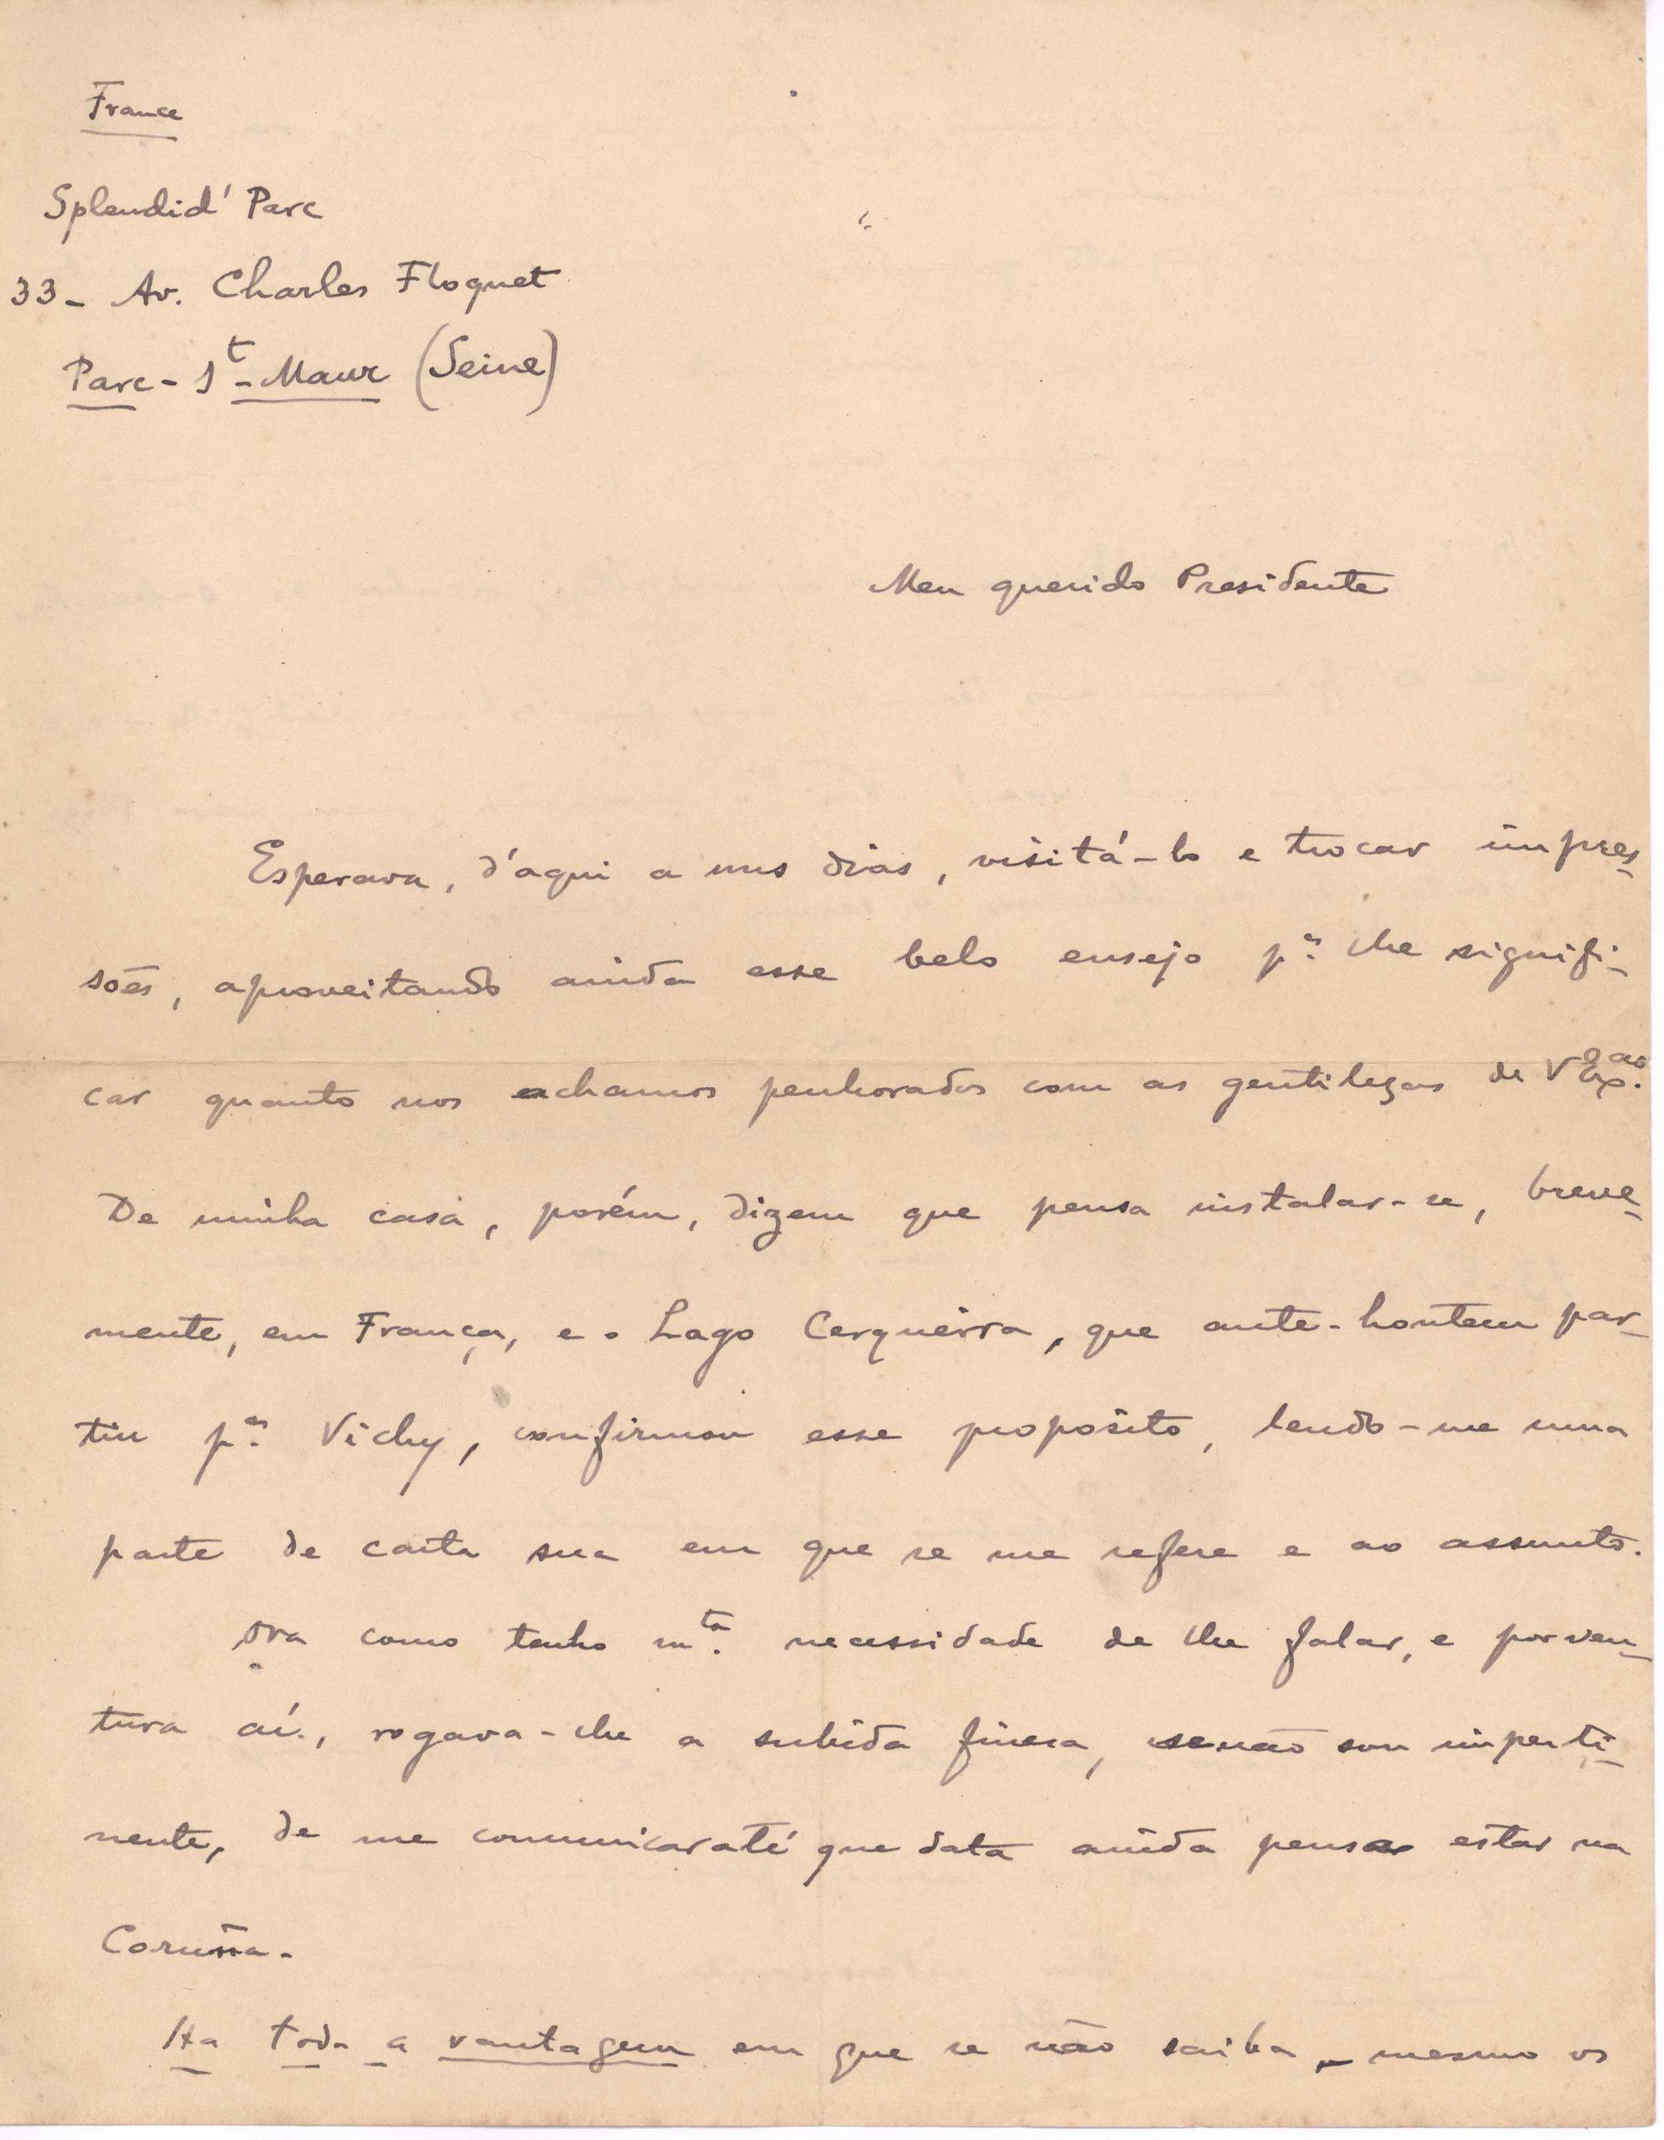 France
Splendid' Parc
33 - Av. Charles Floquet
Parc - St - Maur (Seine)
Meu querido Presidente
Esperava, d'aqui a uns dias, visitá-lo e trocar impres-
sões, aproveitando ainda esse belo ensejo pª lhe signifi-
car quanto nos achamos penhorados com as gentilezas de V. Exas.
De minha casa, porém, dizem que pensa instalar-se, breve-
mente, em França, e o Lago Cerqueira, que ante-hontem par-
tiu pª Vichy, confirmou esse proposito, lendo-me uma
parte de carta sua em que se me refere e ao assunto.
Ora como tenho mta. necessidade de lhe falar, e porven-
tura aí, rogava-lhe a subida fineza, se não sou imperti-
nente, de me comunicar até que data ainda pensa estar na
Coruña.
Ha toda a vantagem em que se não saiba - mesmo os